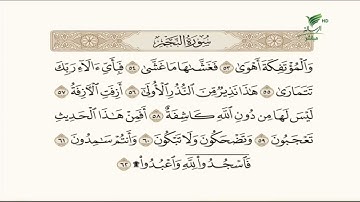 سُورَةُ النَّجْمِ
وَٱلْمُؤْتَفِكَةَ أَهْوَىٰ ٥٣ فَغَشَّىٰهَا مَا غَشَّىٰ ٥٤ فَبِأَيِّ ءَالَآءِ رَبِّكَ
تَتَمَارَىٰ ٥٥ هَٰذَا نَذِيرٌ مِّنَ ٱلنُّذُرِ ٱلْأُولَىٰٓ ٥٦ أَزِفَتِ ٱلْءَازِفَةُ ٥٧
لَيْسَ لَهَا مِن دُونِ ٱللَّهِ كَاشِفَةٌ ٥٨ أَفَمِنْ هَٰذَا ٱلْحَدِيثِ
تَعْجَبُونَ ٥٩ وَتَضْحَكُونَ وَلَا تَبْكُونَ ٦٠ وَأَنتُمْ سَٰمِدُونَ ٦١
فَٱسْجُدُوا۟ لِلَّهِ وَٱعْبُدُوا۟ ۩ ٦٢
HD